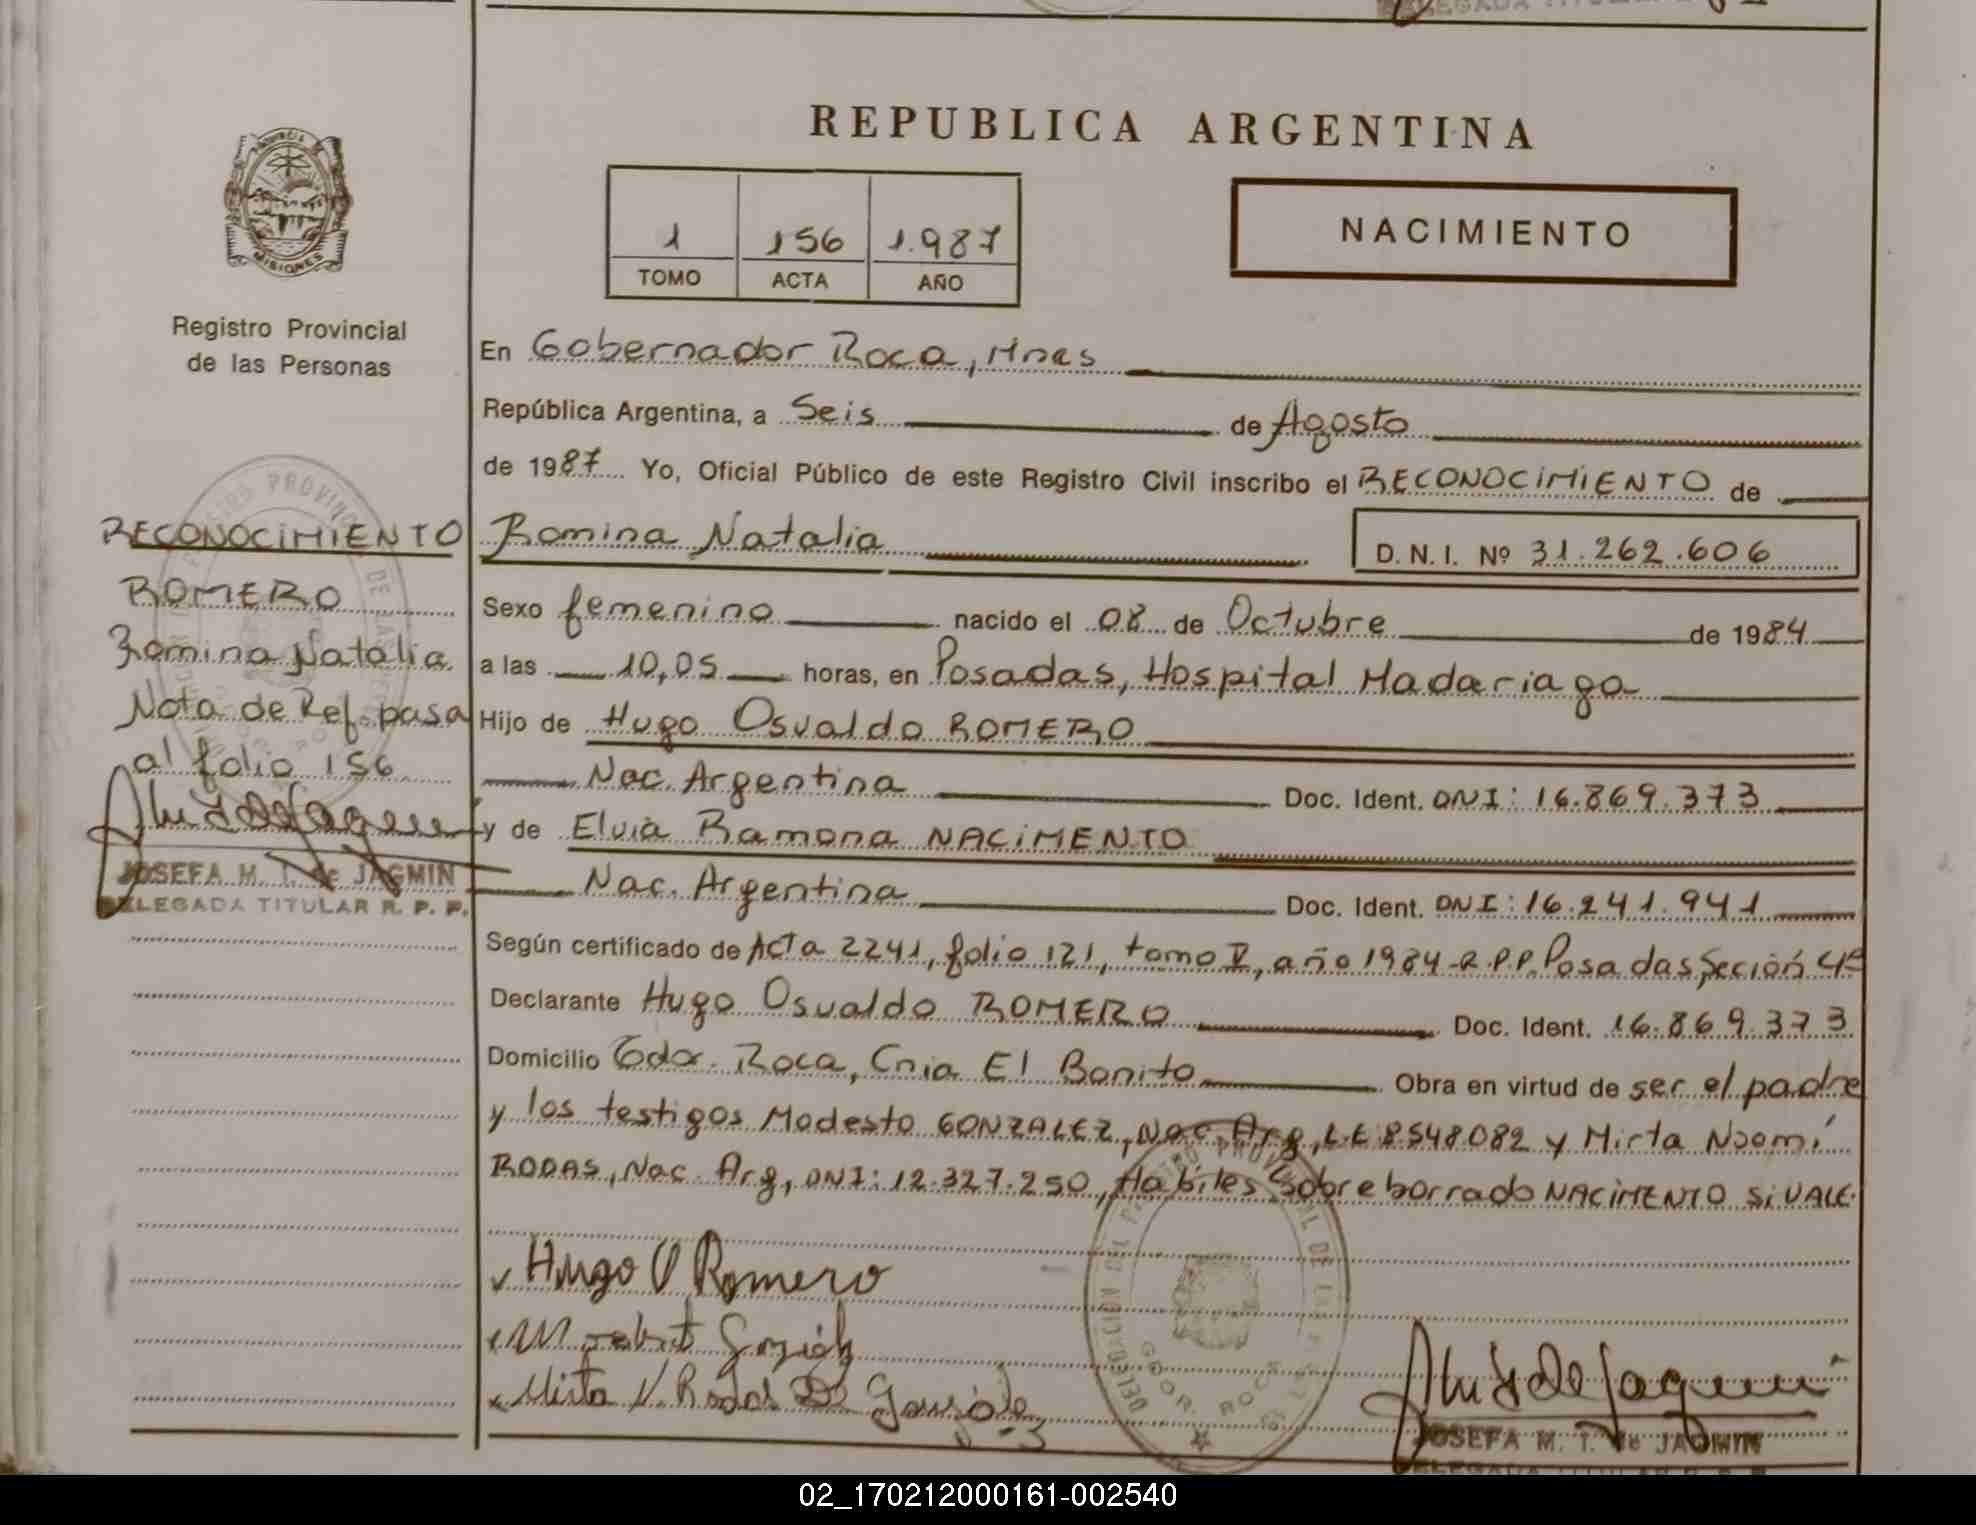 REPUBLICA ARGENTINA
PROVINCIA
MISIONES
Registro Provincial
de las Personas
1 156 1.987
TOMO ACTA AÑO
NACIMIENTO
En Gobernador Roca, Mnes
República Argentina, a Seis de Agosto
de 1987 Yo, Oficial Público de este Registro Civil inscribo el RECONOCIMIENTO de
Romina Natalia D.N.I. Nº 31.262.606
Sexo femenino nacido el 08 de Octubre de 1984
a las 10,05 horas, en Posadas, Hospital Madariaga
Hijo de Hugo Osvaldo ROMERO
Nac. Argentina Doc. Ident. DNI: 16.869.373
y de Elvia Ramona NACIMENTO
Nac. Argentina Doc. Ident. DNI: 16.241.941
Según certificado de Acta 2241, folio 121, tomo V, año 1984-R.P.P. Posadas, Seción 4ª
Declarante Hugo Osvaldo ROMERO Doc. Ident. 16.869.373
Domicilio Gdor. Roca, Cnia El Bonito Obra en virtud de ser el padre
y los testigos Modesto GONZALEZ, Nac. Arg, L.E 8548082 y Mirta Noemí
RODAS, Nac. Arg, DNI: 12.327.250, Hábiles Sobreborrado NACIMENTO SI VALE.
Hugo O Romero
Mirta N. Rodas De
JOSEFA M. T. de JAGMIN
DELEGADA TITULAR R. P. P.
RECONOCIMIENTO
ROMERO
Romina Natalia
Nota de Ref. pasa
al folio 156
JOSEFA M. T. de JAGMIN
DELEGADA TITULAR R. P. P.
02_170212000161-002540